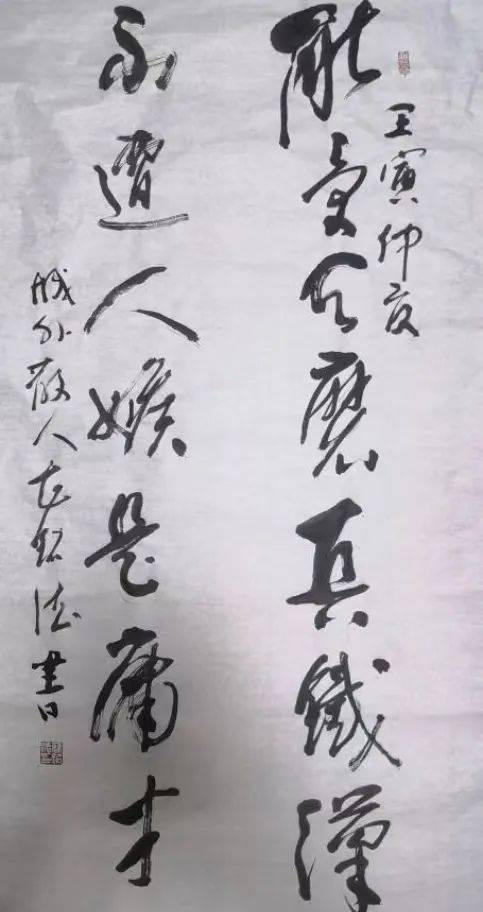 壬寅仲夏
能受天磨真鐵漢
不遭人嫉是庸才
城外散人書